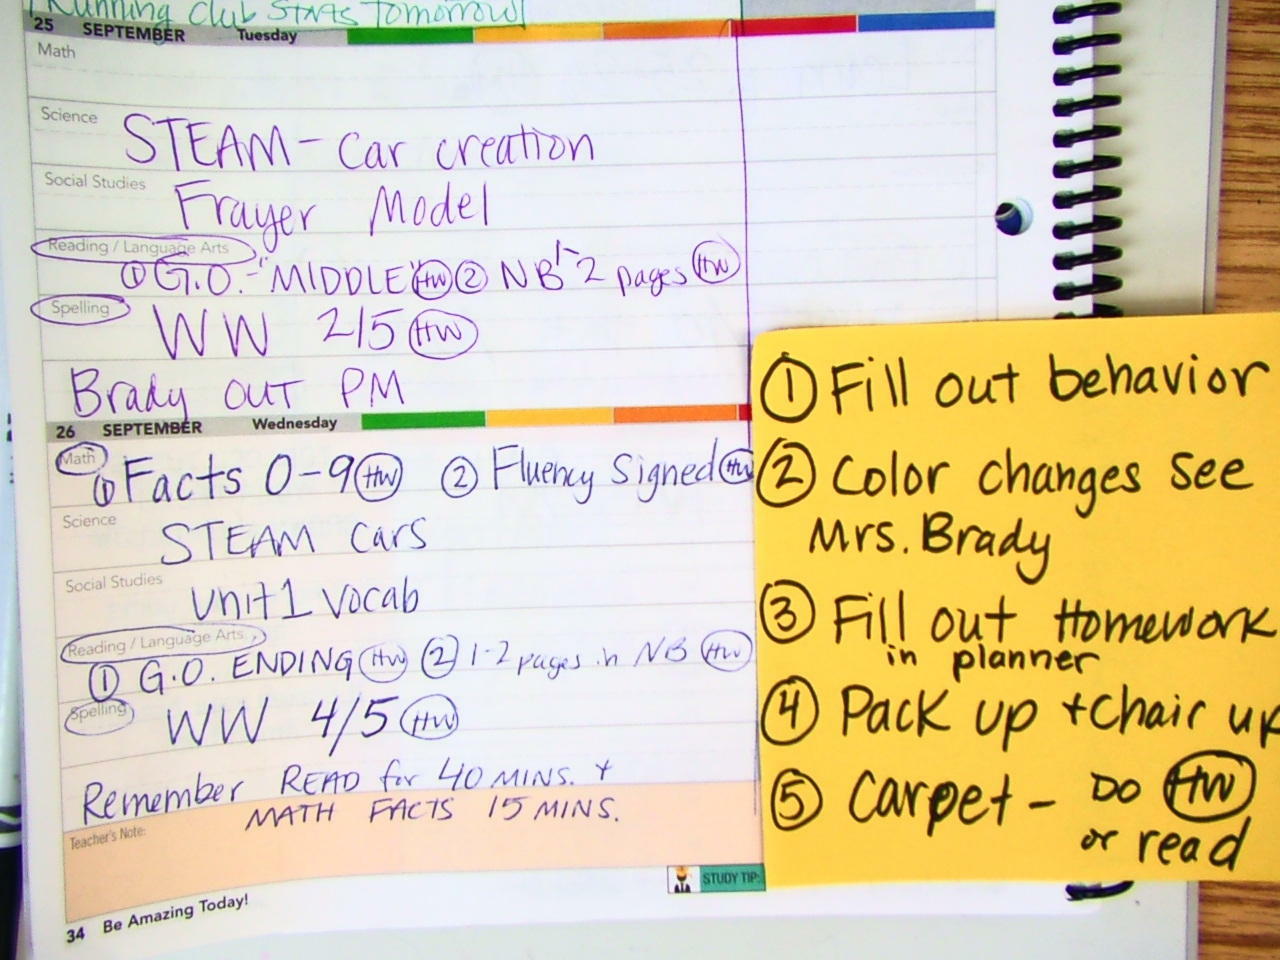 Running Club Starts Tomorrow
25 SEPTEMBER Tuesday
Math
Science
STEAM - Car creation
Social Studies
Frayer Model
Reading / Language Arts
① G.O. - "MIDDLE" HW ② NB 1-2 pages HW
Spelling
WW 2/5 HW
Brady OUT PM
26 SEPTEMBER Wednesday
Math
① Facts 0-9 HW ② Fluency Signed HW
Science
STEAM Cars
Social Studies
Unit 1 Vocab
Reading / Language Arts
① G.O. ENDING HW ② 1-2 pages in NB HW
Spelling
WW 4/5 HW
Remember READ for 40 MINS. +
MATH FACTS 15 MINS.
Teacher's Note:
STUDY TIP:
34 Be Amazing Today!
① Fill out behavior
② Color changes see
Mrs. Brady
③ Fill out Homework
in planner
④ Pack up + chair up
⑤ Carpet - DO HW
or read